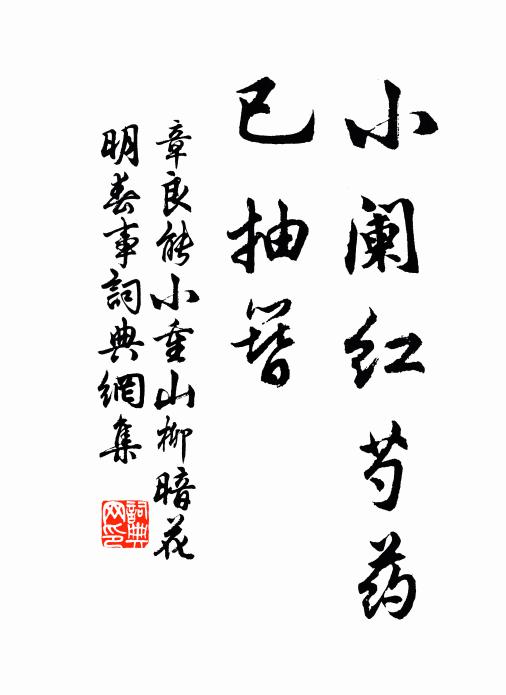 小阑红芍药
已抽簪
章良能小重山柳暗花
明春事詞典網集
詞典
网印